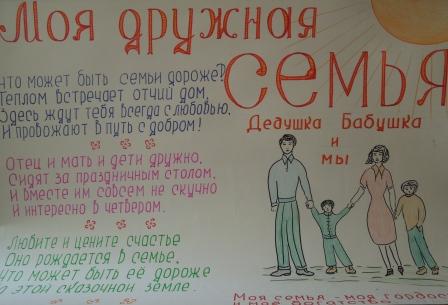 Моя дружная
семья
Что может быть семьи дороже?
Теплом встречает отчий дом,
Здесь ждут тебя всегда с любовью,
И провожают в путь с добром!
Отец и мать и дети дружно,
Сидят за праздничным столом,
И вместе им совсем не скучно
И интересно в четвером.
Любите и цените счастье
Оно рождается в семье,
Что может быть её дороже
На этой сказочной земле.
Дедушка Бабушка
и
мы
Моя семья - моё гордос
и моё